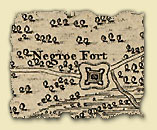 Negroe Fort